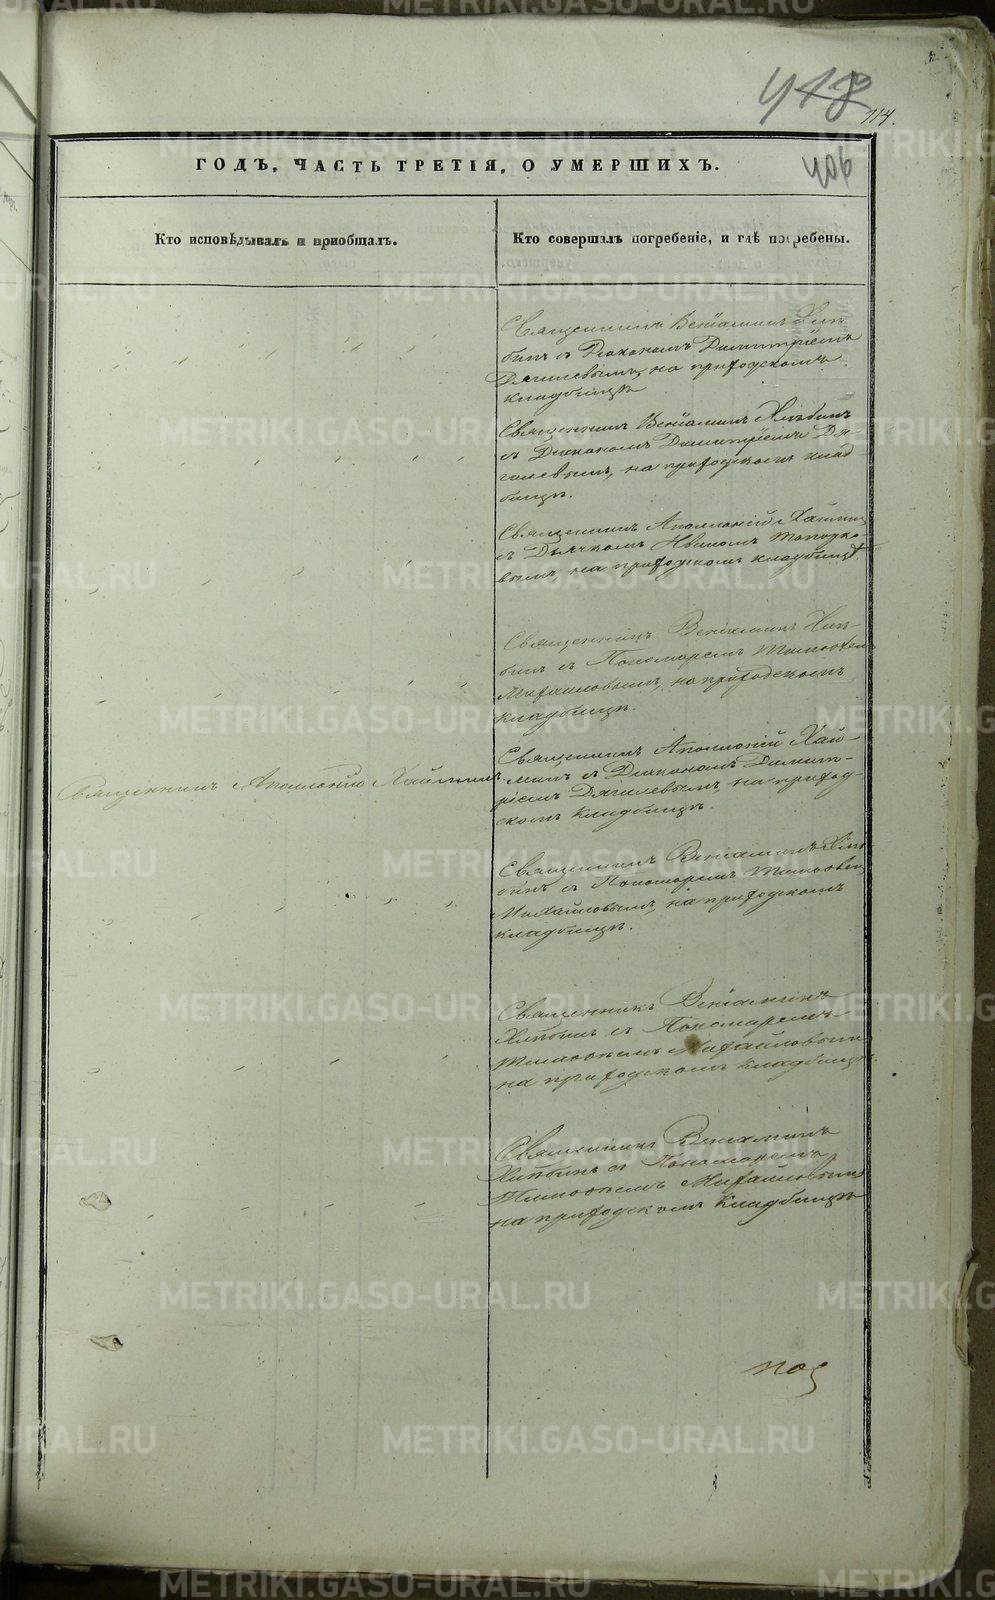 418
114.
406
ГОДЪ, ЧАСТЬ ТРЕТІЯ, О УМЕРШИХЪ.
Кто исповѣдывалъ и пріобщалъ.
Кто совершалъ погребеніе, и гдѣ погребены.
Священникъ Веніаминъ Хлѣ-
бинъ съ Діакономъ Димитріемъ
Дягилевымъ, на приходскомъ
кладбищѣ
Священникъ Веніаминъ Хлѣбинъ
съ Діакономъ Димитріемъ Дя-
гилевымъ, на приходскомъ клад
бищѣ.
Священникъ Аполлоній
съ Дьячкомъ Иваномъ Топорко
вымъ, на приходскомъ кладбищѣ.
Священникъ Веніаминъ Хлѣ-
бинъ съ Пономаремъ Тимоѳеемъ
Михайловымъ, на приходскомъ
кладбищѣ.
Священникъ Аполлоній
Священникъ Аполлоній
съ Діакономъ Димит-
ріемъ Дягилевымъ, на приход-
скомъ кладбищѣ.
Священникъ Веніаминъ Хлѣ
бинъ съ Пономаремъ Тимоѳеемъ
Михайловымъ, на приходскомъ
кладбищѣ.
Священникъ Веніаминъ
Хлѣбинъ съ Пономаремъ
Тимоѳеемъ Михайловымъ
на приходскомъ кладбищѣ.
Священникъ Веніаминъ
Хлѣбинъ съ Пономаремъ
Тимоѳеемъ Михайловымъ
на приходскомъ кладбищѣ
METRIKI.GASO-URAL.RU